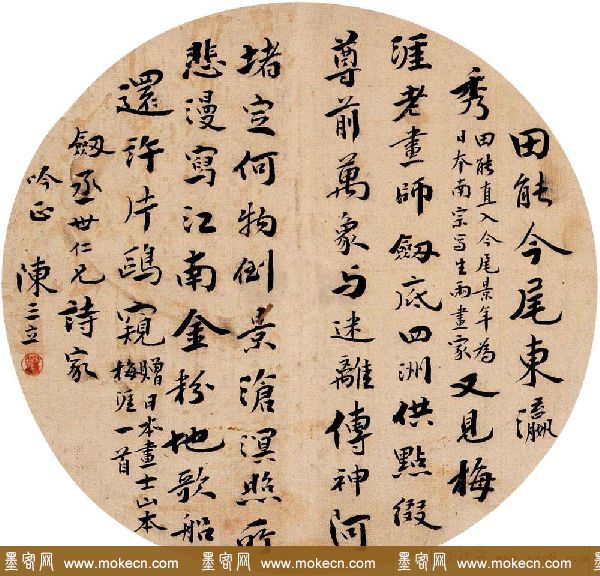 田能今尾東瀛
秀
田能直入今尾景年為
日本南宗寫生兩畫家
又見梅
涯老畫師劔底四洲供點綴
尊前萬象与迷離傳神阿
堵定何物倒景滄溟照所
悲漫寫江南金粉地歌船
還許片鷗窺
贈日本畫士山本
梅涯一首
劔丞世仁兄詩家
吟正 陳三立
墨客网 www.mokecn.com 墨客网 www.mokecn.com 墨客网 www.mokecn.com